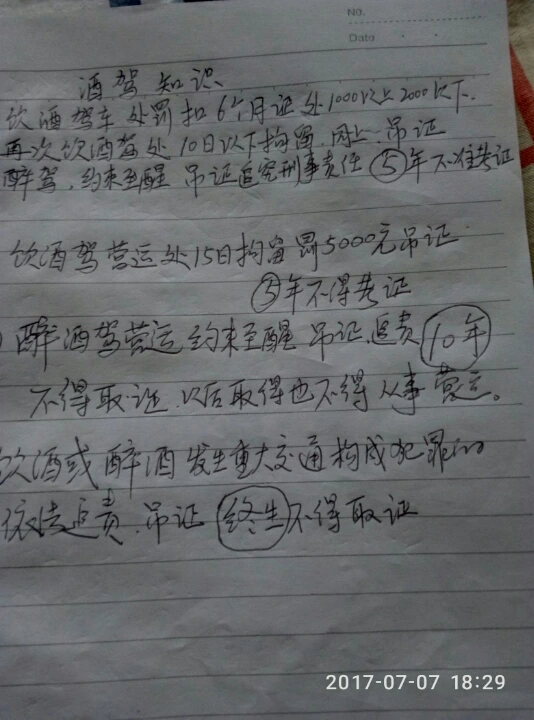 No.
Date
酒驾知识
饮酒驾车处罚扣6个月证处1000以上2000以下.
再次饮酒驾处10日以下拘留,同上.吊证
醉驾,约束至醒 吊证追究刑事责任 ⑤年不准考证
饮酒驾营运处15日拘留罚5000元吊证.
⑤年不得考证
醉酒驾营运约束至醒 吊证.追责 10年
不得取证.以后取得也不得从事营运。
饮酒或醉酒发生重大交通构成犯罪的
依法追责.吊证 终生不得取证
2017-07-07 18:29